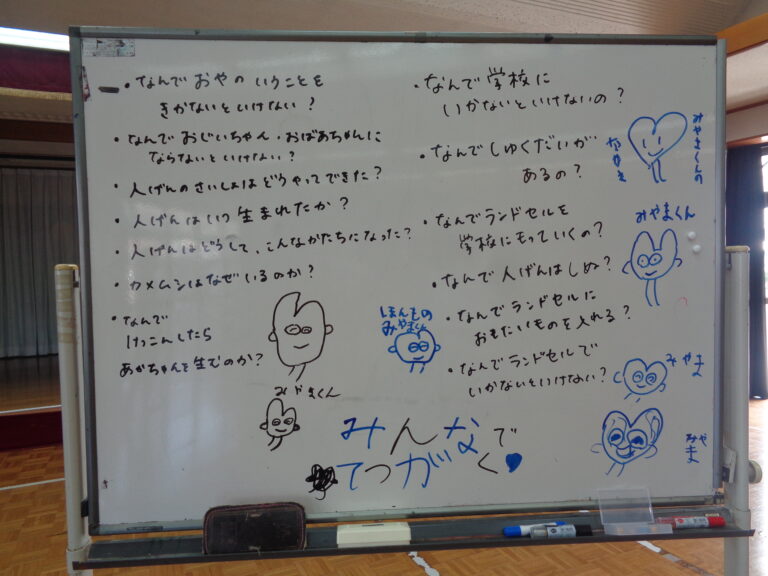 ・なんで おやの いうことを
きかないといけない？
・なんで おじいちゃん・おばあちゃんに
ならないといけない？
・人げんのさいしょはどうやってできた？
・人げんはいつ生まれたか？
・人げんはどうして、こんなかたちになった？
・カメムシはなぜいるのか？
・なんで
けっこんしたら
あかちゃんを生むのか？
・なんで学校に
いかないといけないの？
・なんでしゅくだいが
あるの？
・なんでランドセルを
学校にもっていくの？
・なんで人げんはしぬ？
・なんでランドセルに
おもたいものを入れる？
・なんでランドセルで
いかないといけない？
みやまくんの
みやまくん
ほんもの
みやまくん
みやま
みやま
みんなで
てつがく